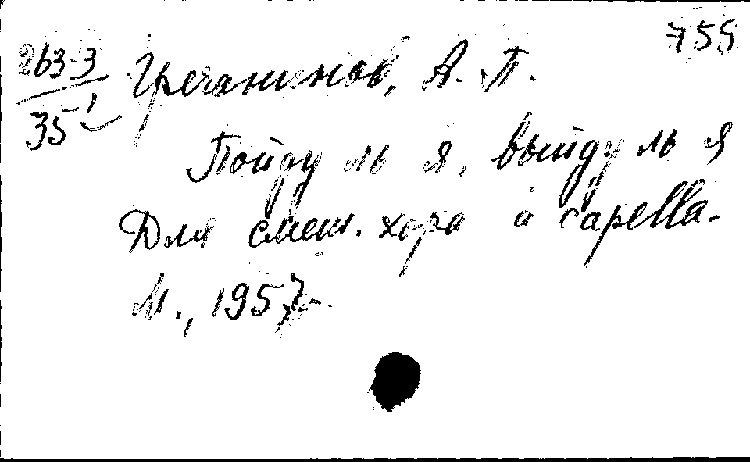 755
263-3
35
Гречанинов, А. Т.
Пойду ль я, выйду ль я
Для смеш. хора a capella.
М., 1957